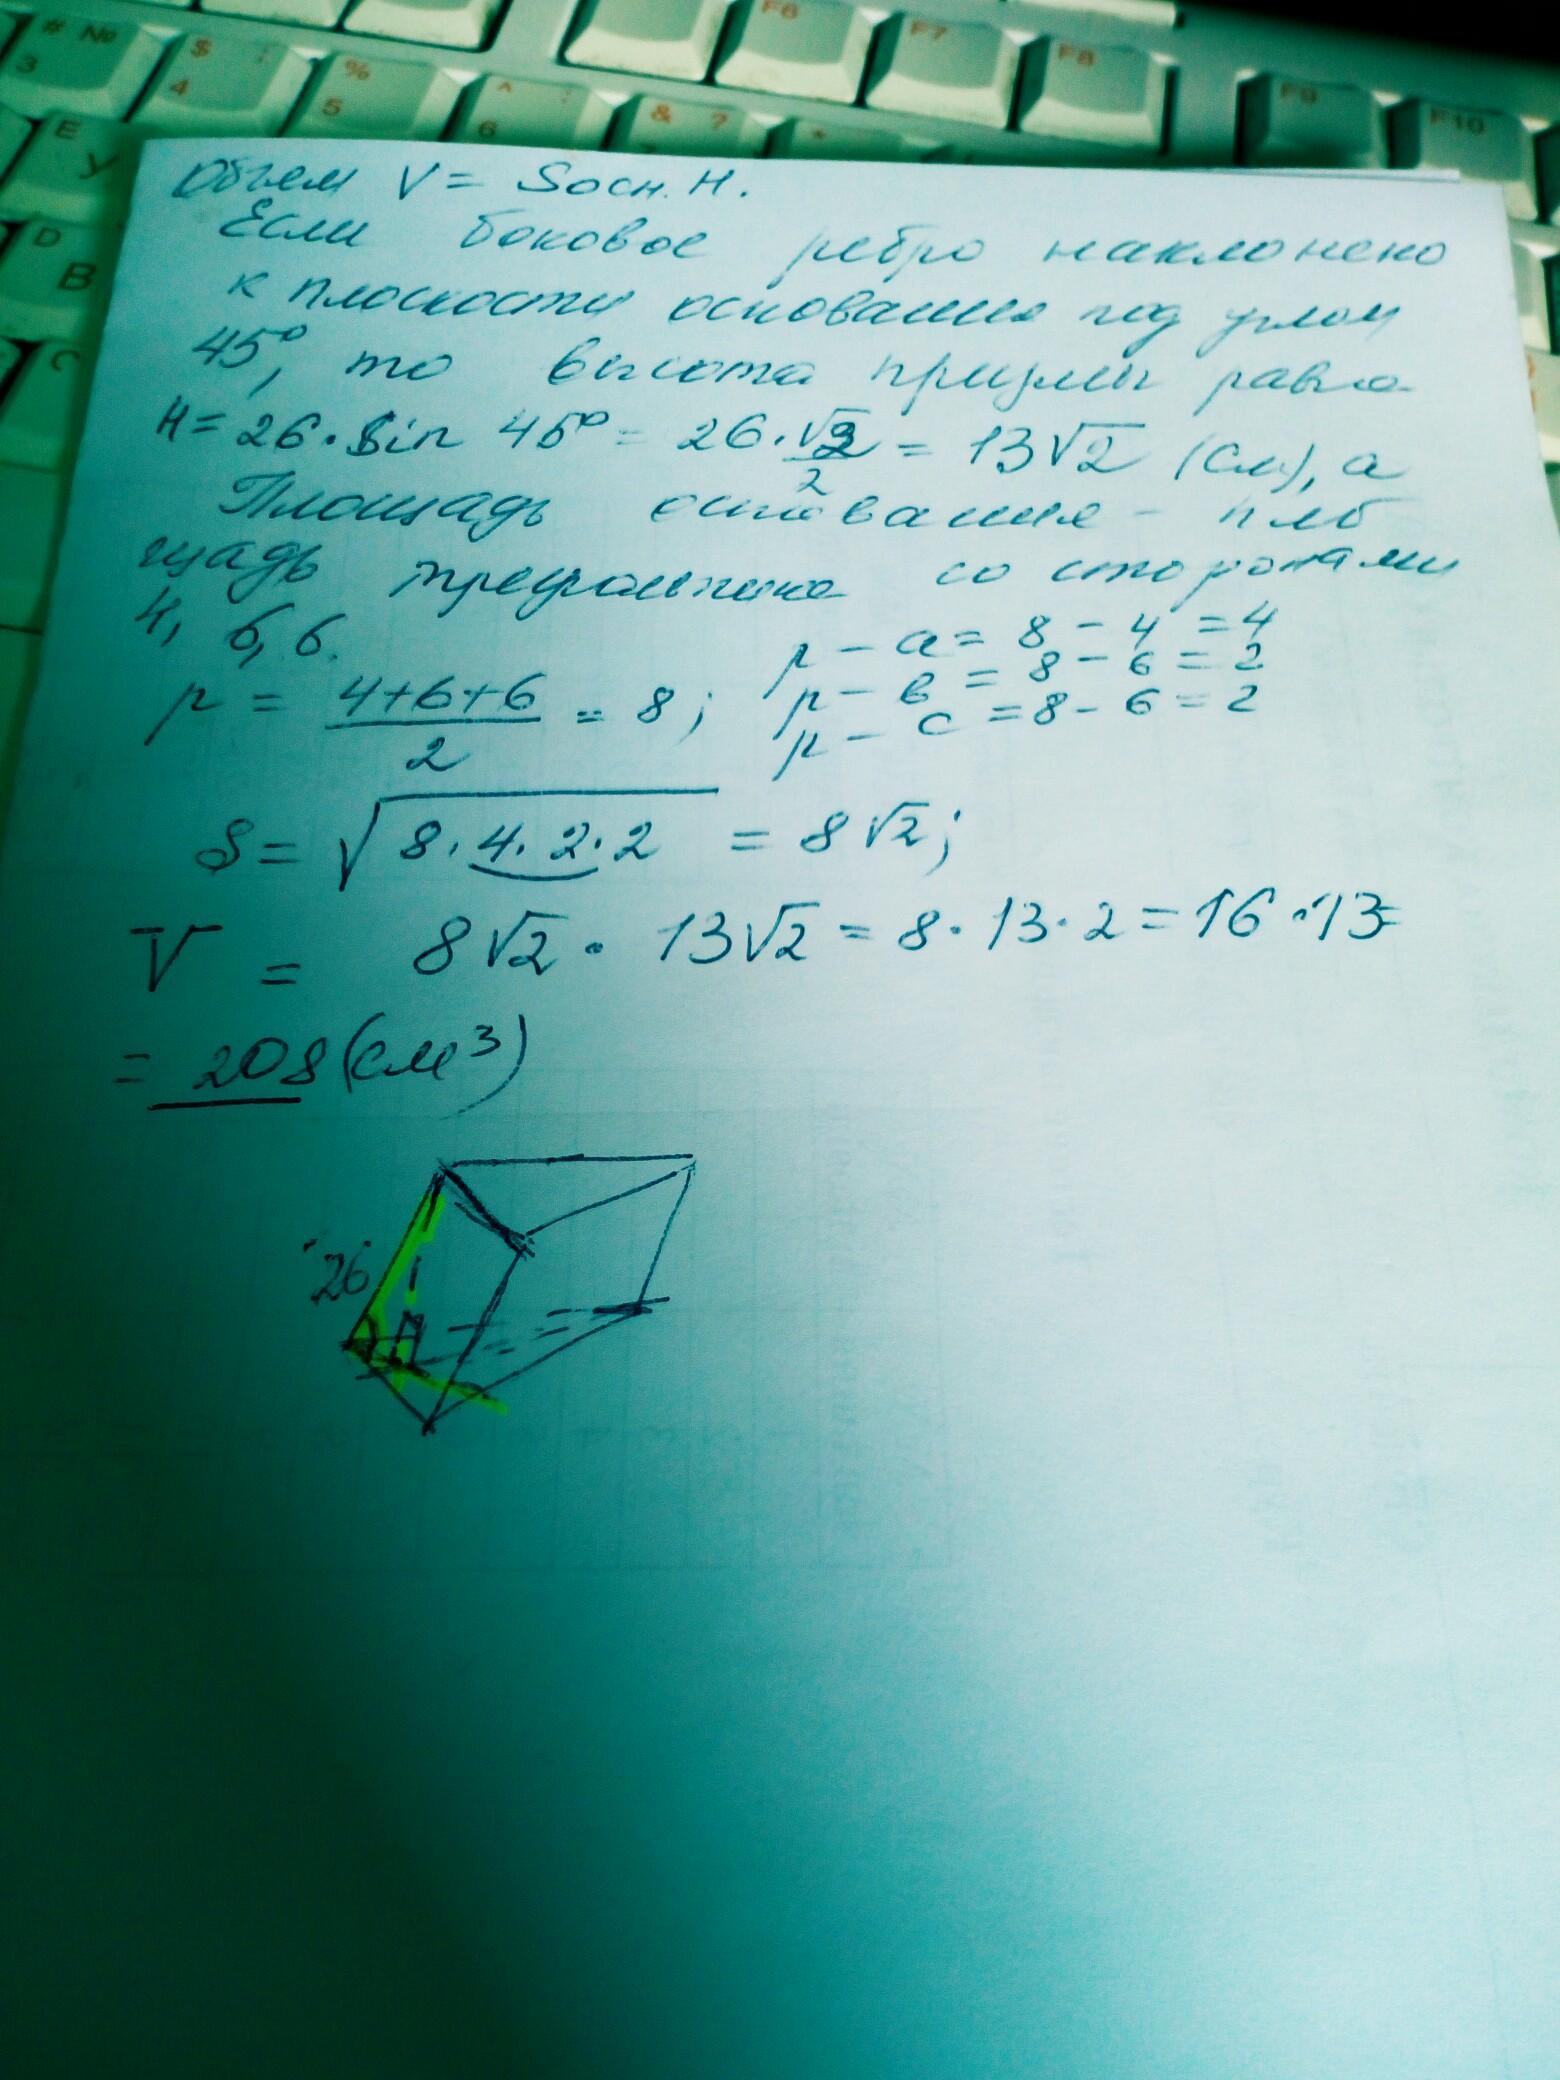 # № 3
$ ; 4
% 5
^ : 6
& ?
*
F6
F7
F8
F9
F10
E У
D В
C
Объем V = Sосн. H.
Если боковое ребро наклонено
к плоскости основания под углом
45°, то высота призмы равна
H = 26 · Sin 45° = 26 · √2/2 = 13√2 (см), а
Площадь основания - пло
щадь треугольника со сторонами
4, 6, 6.
p = (4+6+6)/2 = 8;
p - a = 8 - 4 = 4
p - в = 8 - 6 = 2
p - c = 8 - 6 = 2
S = √(8 · 4 · 2 · 2) = 8√2;
V = 8√2 · 13√2 = 8 · 13 · 2 = 16 · 13 =
= 208 (см³)
26